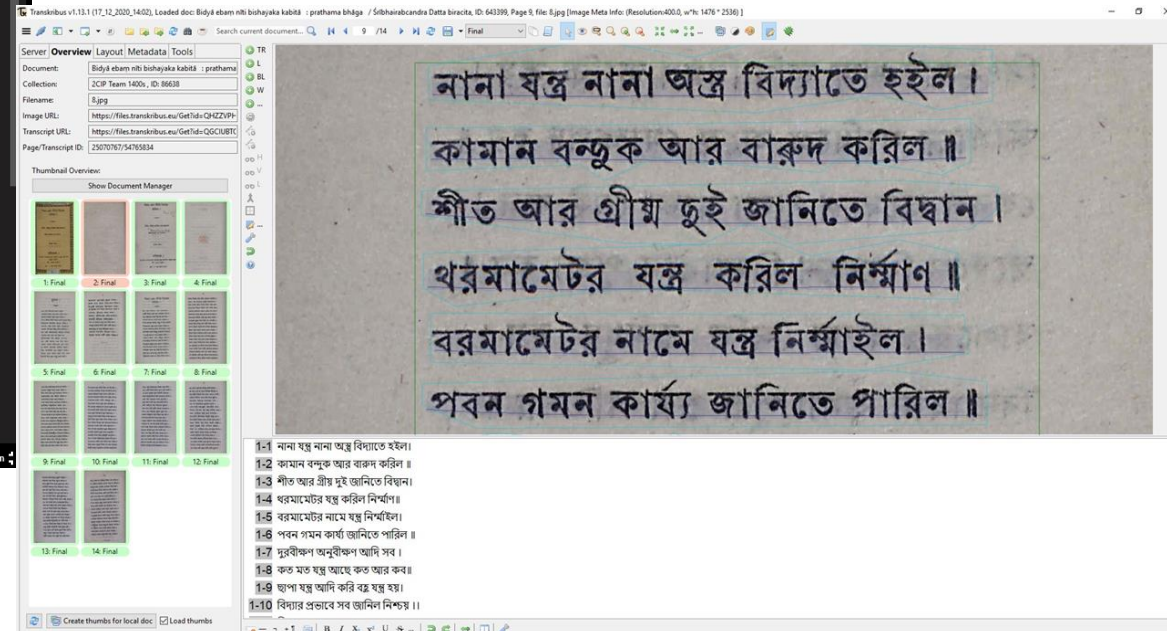 Transkribus v1.13.1 (17_12_2020_14:02), Loaded doc: Bidyā ebaṃ nīti bishayaka kabitā : prathama bhāga / Śrībhairabcandra Datta biracita, ID: 643399, Page 9, file: 8.jpg [Image Meta Info: (Resolution:400.0, w*h: 1476 * 2536) ]
Search current document...
9 /14
Final
Server Overview Layout Metadata Tools
Document: Bidyā ebaṃ nīti bishayaka kabitā : prathama
Collection: 2CIP Team 1400s , ID: 86638
Filename: 8.jpg
Image URL: https://files.transkribus.eu/Get?id=QHZZVPH
Transcript URL: https://files.transkribus.eu/Get?id=QGCIUBTC
Page/Transcript ID: 25070767/54765834
Thumbnail Overview:
Show Document Manager
1: Final 2: Final 3: Final 4: Final
5: Final 6: Final 7: Final 8: Final
9: Final 10: Final 11: Final 12: Final
13: Final 14: Final
Create thumbs for local doc Load thumbs
TR
L
BL
W
...
H
V
L
...
নানা যন্ত্র নানা অস্ত্র বিদ্যাতে হইল।
কামান বন্দুক আর বারুদ করিল॥
শীত আর গ্রীষ্ম দুই জানিতে বিদ্বান।
থরমামেটর যন্ত্র করিল নির্ম্মাণ॥
বরমামেটর নামে যন্ত্র নির্ম্মাইল।
পবন গমন কার্য্য জানিতে পারিল॥
1-1 নানা যন্ত্র নানা অস্ত্র বিদ্যাতে হইল।
1-2 কামান বন্দুক আর বারুদ করিল ॥
1-3 শীত আর গ্রীষ্ম দুই জানিতে বিদ্বান।
1-4 থরমামেটর যন্ত্র করিল নির্ম্মাণ॥
1-5 বরমামেটর নামে যন্ত্র নির্ম্মাইল।
1-6 পবন গমন কার্য্য জানিতে পারিল ॥
1-7 দুরবীক্ষণ অনুবীক্ষণ আদি সব ।
1-8 কত মত যন্ত্র আছে কত আর কব॥
1-9 ছাপা যন্ত্র আদি করি বহু যন্ত্র হয়।
1-10 বিদ্যার প্রভাবে সব জানিল নিশ্চয় ।।